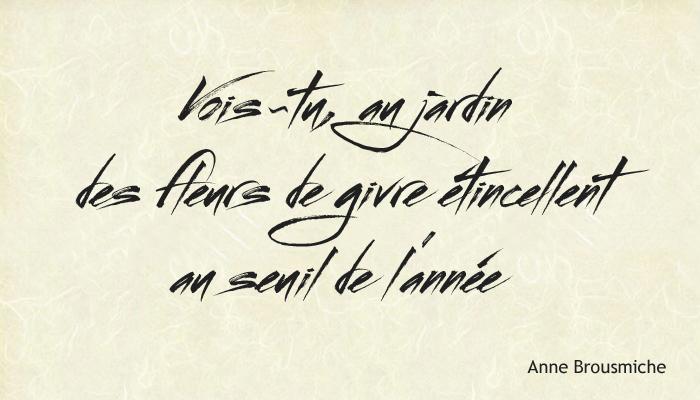 Vois-tu, au jardin
des fleurs de givre étincellent
au seuil de l'année
Anne Brousmiche